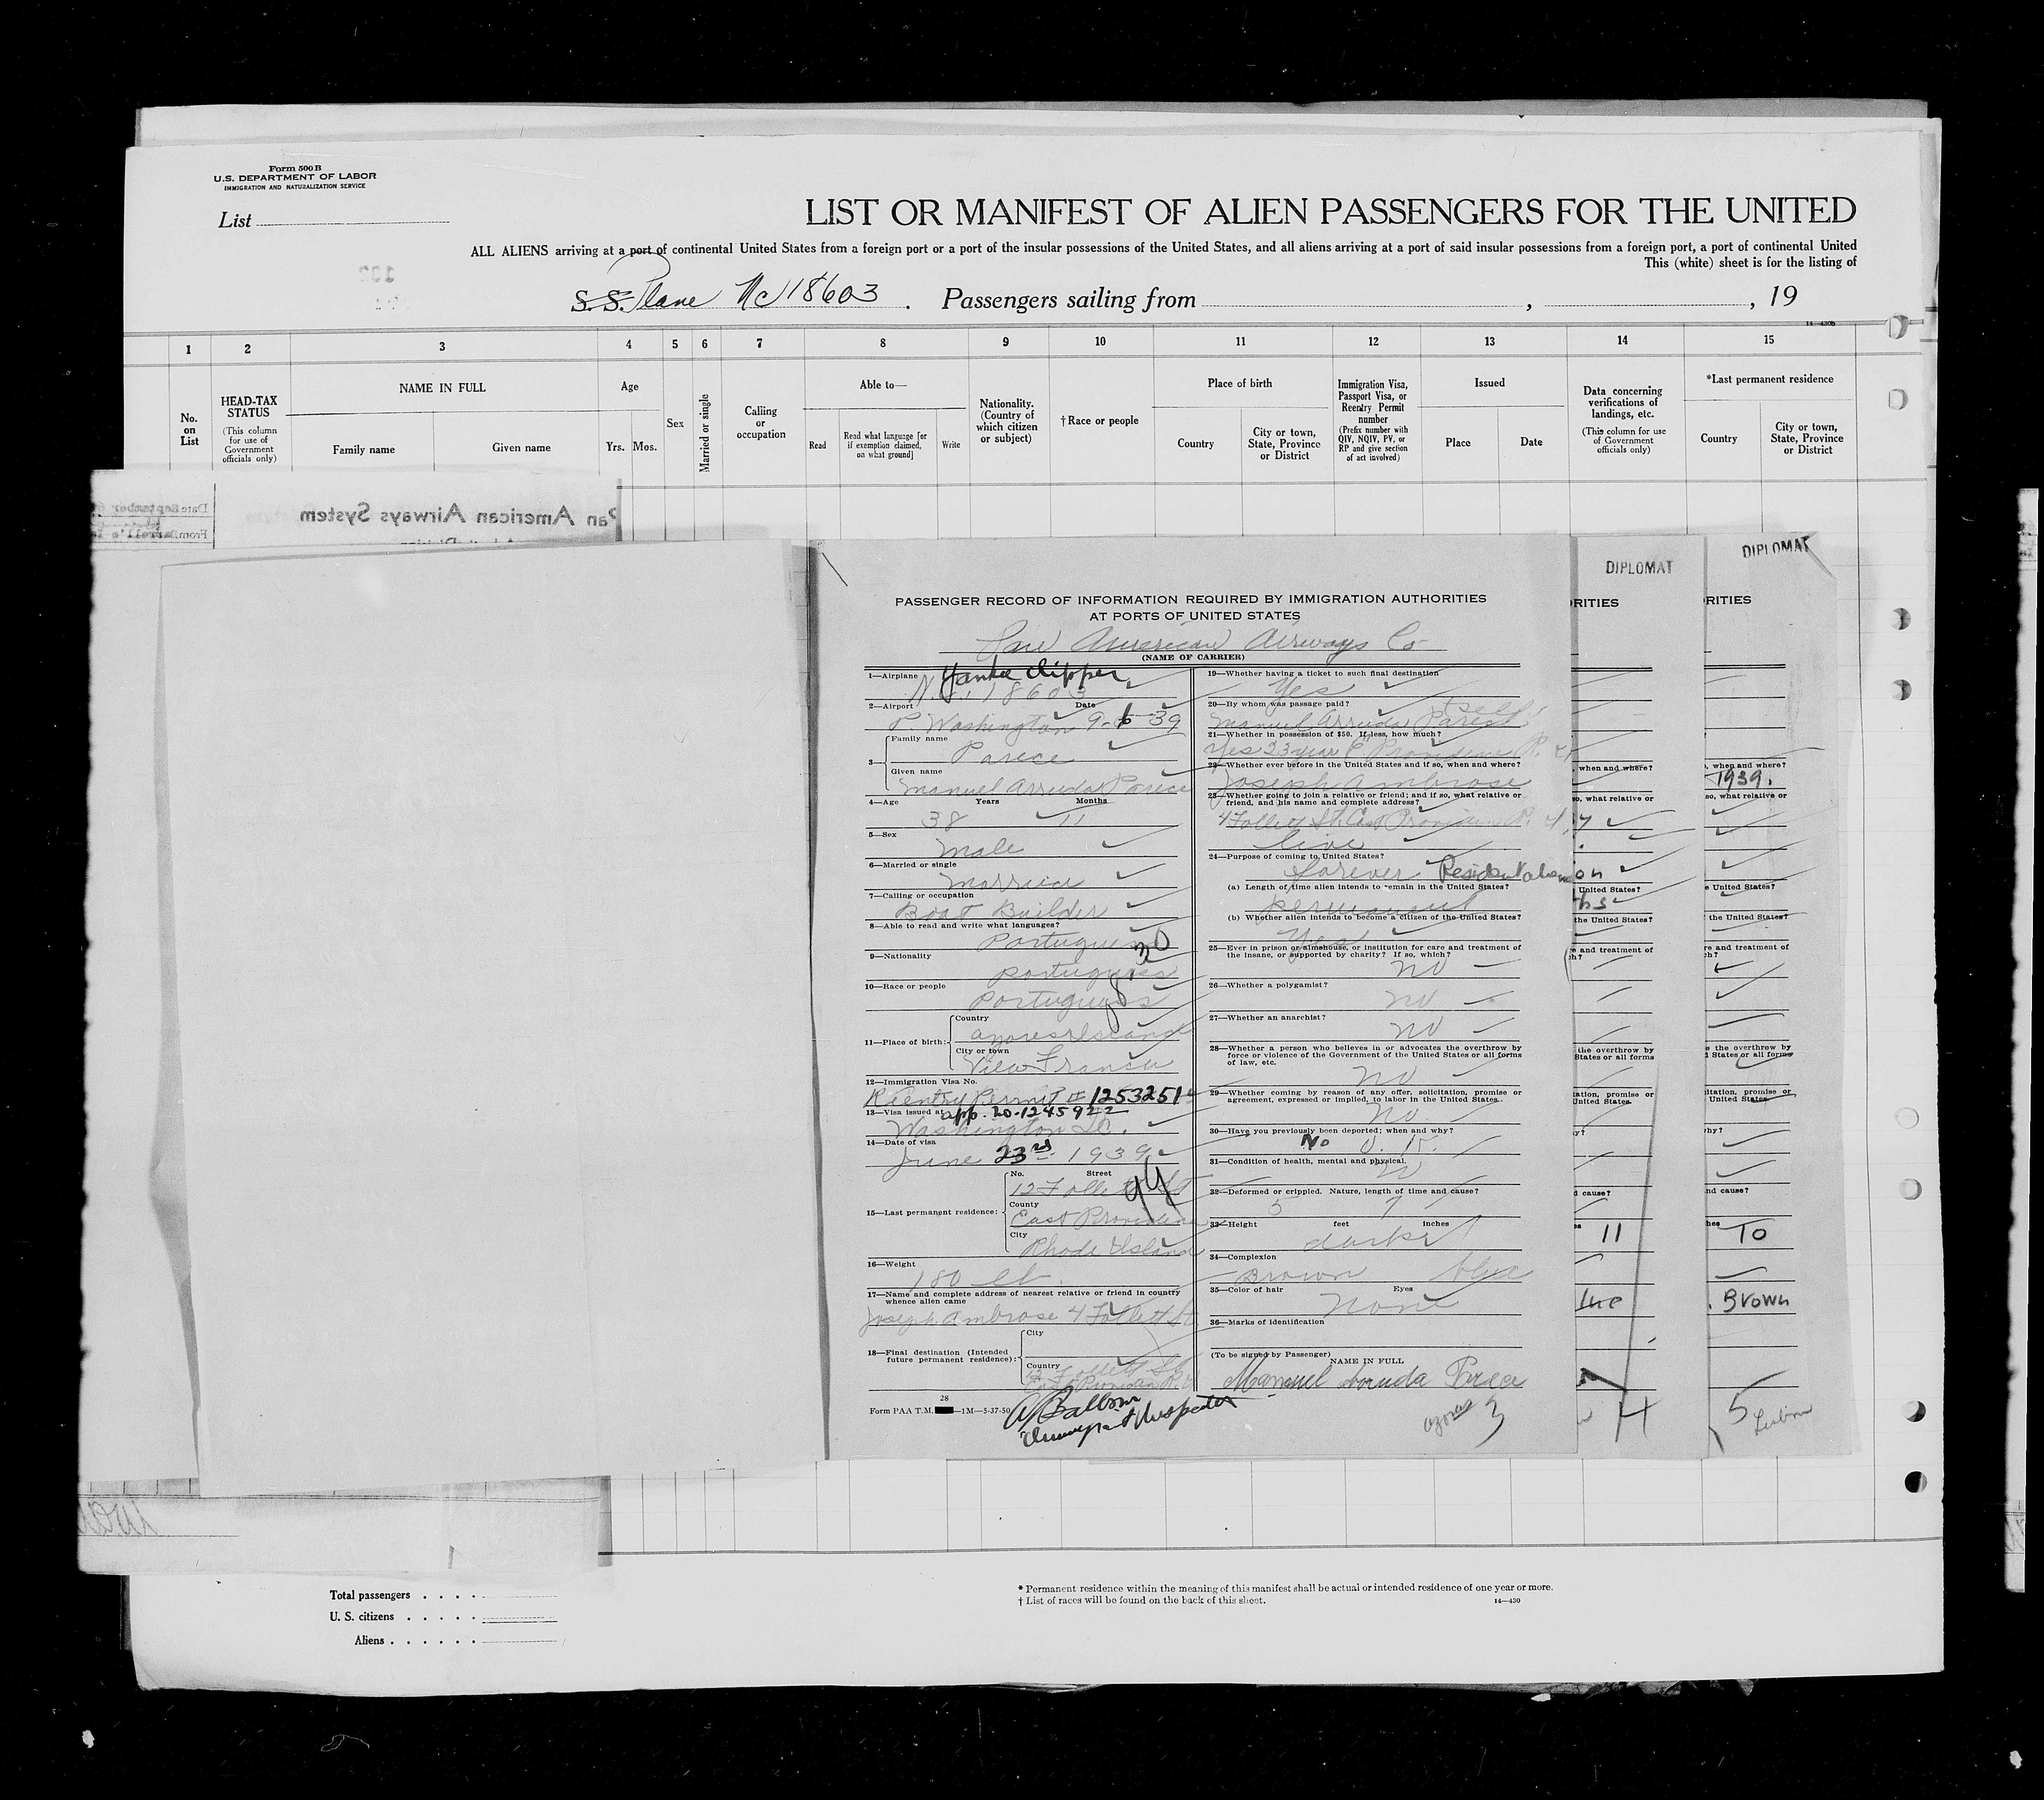 Form 500 B
U.S. DEPARTMENT OF LABOR
IMMIGRATION AND NATURALIZATION SERVICE
List
LIST OR MANIFEST OF ALIEN PASSENGERS FOR THE UNITED
ALL ALIENS arriving at a port of continental United States from a foreign port or a port of the insular possessions of the United States, and all aliens arriving at a port of said insular possessions from a foreign port, a port of continental United
This (white) sheet is for the listing of
S.S. Plane Nc 18603. Passengers sailing from , , 19
14—430B
1 2 3 4 5 6 7 8 9 10 11 12 13 14 15
No. on List
HEAD-TAX STATUS
(This column for use of Government officials only)
NAME IN FULL
Family name
Given name
Age
Yrs. Mos.
Sex
Married or single
Calling or occupation
Able to—
Read
Read what language [or if exemption claimed, on what ground]
Write
Nationality. (Country of which citizen or subject)
† Race or people
Place of birth
Country
City or town, State, Province or District
Immigration Visa, Passport Visa, or Reentry Permit number
(Prefix number with QIV, NQIV, PV, or RP and give section of act involved)
Issued
Place
Date
Data concerning verifications of landings, etc.
(This column for use of Government officials only)
*Last permanent residence
Country
City or town, State, Province or District
Pan American Airways System
PASSENGER RECORD OF INFORMATION REQUIRED BY IMMIGRATION AUTHORITIES
AT PORTS OF UNITED STATES
Pan American Airways Co
(NAME OF CARRIER)
1—Airplane Yankee Clipper
N.C. 18603
2—Airport Date
P. Washington 9-6-39
3— Family name
Parece
Given name
Manuel Arruda Parece
4—Age Years Months
38 11
5—Sex
Male
6—Married or single
Married
7—Calling or occupation
Boat Builder
8—Able to read and write what languages?
Portuguese
9—Nationality
portugues
10—Race or people
Portugues
11—Place of birth: Country
Azores Island
City or town
Vila Franca
12—Immigration Visa No.
Reentry Permit # 1253251
13—Visa issued at app. no. 1245922
Washington DC.
14—Date of visa
June 23rd 1939
15—Last permanent residence: No. Street
12 Follett St
County
East Providence
City
Rhode Island
16—Weight
180 lb.
17—Name and complete address of nearest relative or friend in country whence alien came
Joseph Ambrose 4 Follett St
18—Final destination (Intended future permanent residence): City
Country
Follett St
East Providen R.
28
Form PAA T.M. —1M—5-37-50
Immigrant Inspector
19—Whether having a ticket to such final destination
Yes
20—By whom was passage paid? (Self)
Manuel Arruda Parece
21—Whether in possession of $50. If less, how much?
Yes 23 year E Providence R. I
22—Whether ever before in the United States and if so, when and where?
Joseph Ambrose
23—Whether going to join a relative or friend; and if so, what relative or friend, and his name and complete address?
4 Follett St East Providen R. I
live
24—Purpose of coming to United States?
forever Resident alien
(a) Length of time alien intends to remain in the United States?
permanent
(b) Whether alien intends to become a citizen of the United States?
Yes
25—Ever in prison or almshouse, or institution for care and treatment of the insane, or supported by charity? If so, which?
no
26—Whether a polygamist?
no
27—Whether an anarchist?
no
28—Whether a person who believes in or advocates the overthrow by force or violence of the Government of the United States or all forms of law, etc.
no
29—Whether coming by reason of any offer, solicitation, promise or agreement, expressed or implied, to labor in the United States.
no
30—Have you previously been deported; when and why?
No O. K.
31—Condition of health, mental and physical.
no
32—Deformed or crippled. Nature, length of time and cause?
5 7
33—Height feet inches
dark
34—Complexion
Brown blue
35—Color of hair Eyes
none
36—Marks of identification
(To be signed by Passenger)
NAME IN FULL
Manuel Arruda Parece
azores 3
DIPLOMAT
RITIES
, when and where?
so, what relative or
United States?
the United States?
e and treatment of
the overthrow by
States or all forms
tation, promise or
United States.
d cause?
11
4
DIPLOMAT
RITIES
, when and where?
1939.
so, what relative or
e United States?
the United States?
re and treatment of
s the overthrow by
d States or all forms
itation, promise or
United States.
why?
nd cause?
hes 10
Brown
5 Lisbon
Total passengers
U. S. citizens
Aliens
* Permanent residence within the meaning of this manifest shall be actual or intended residence of one year or more.
† List of races will be found on the back of this sheet.
14—430